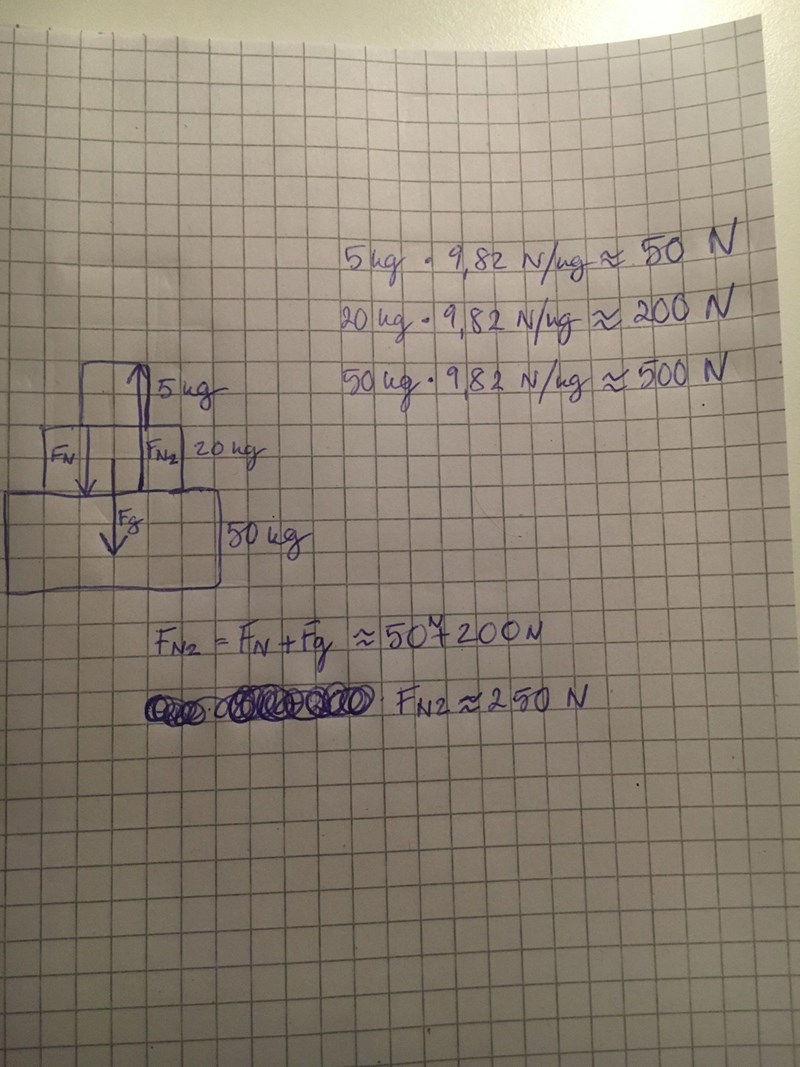 5 kg · 9,82 N/kg ≈ 50 N
20 kg · 9,82 N/kg ≈ 200 N
50 kg · 9,82 N/kg ≈ 500 N
5 kg
FN FN2 20 kg
Fg
50 kg
FN2 = FN + Fg ≈ 50N + 200N
FN2 ≈ 250 N